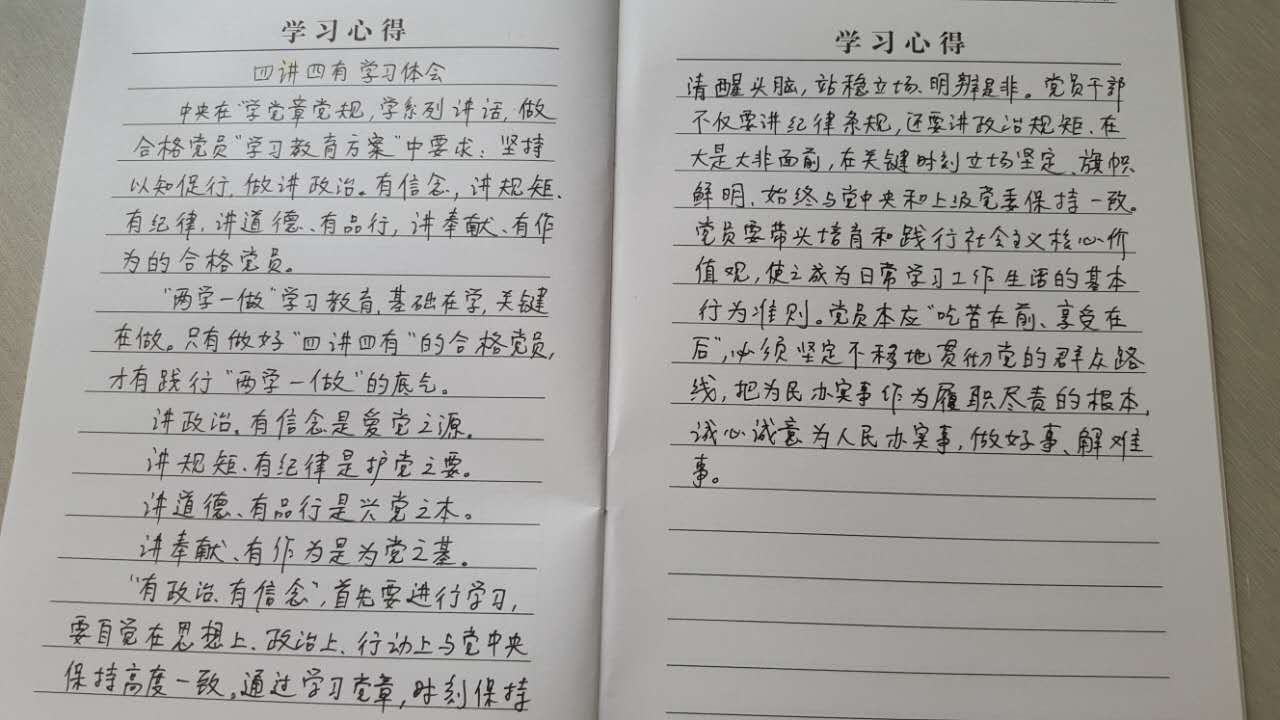 学习心得
四讲四有学习体会
中央在“学党章党规,学系列讲话,做
合格党员”学习教育方案”中要求:坚持
以知促行,做讲政治。有信念,讲规矩、
有纪律,讲道德、有品行,讲奉献、有作
为的合格党员。
“两学一做”学习教育,基础在学,关键
在做。只有做好“四讲四有”的合格党员,
才有践行“两学一做”的底气。
讲政治。有信念是爱党之源。
讲规矩、有纪律是护党之要。
讲道德、有品行是兴党之本。
讲奉献、有作为是为党之基。
“有政治、有信念”,首先要进行学习,
要自觉在思想上、政治上、行动上与党中央
保持高度一致。通过学习党章,时刻保持
学习心得
清醒头脑,站稳立场、明辨是非。党员干部
不仅要讲纪律条规,还要讲政治规矩、在
大是大非面前,在关键时刻立场坚定、旗帜
鲜明,始终与党中央和上级党委保持一致。
党员要带头培育和践行社会主义核心价
值观,使之成为日常学习工作生活的基本
行为准则。党员本应“吃苦在前、享受在
后”,必须坚定不移地贯彻党的群众路
线,把为民办实事作为履职尽责的根本,
诚心诚意为人民办实事,做好事、解难
事。